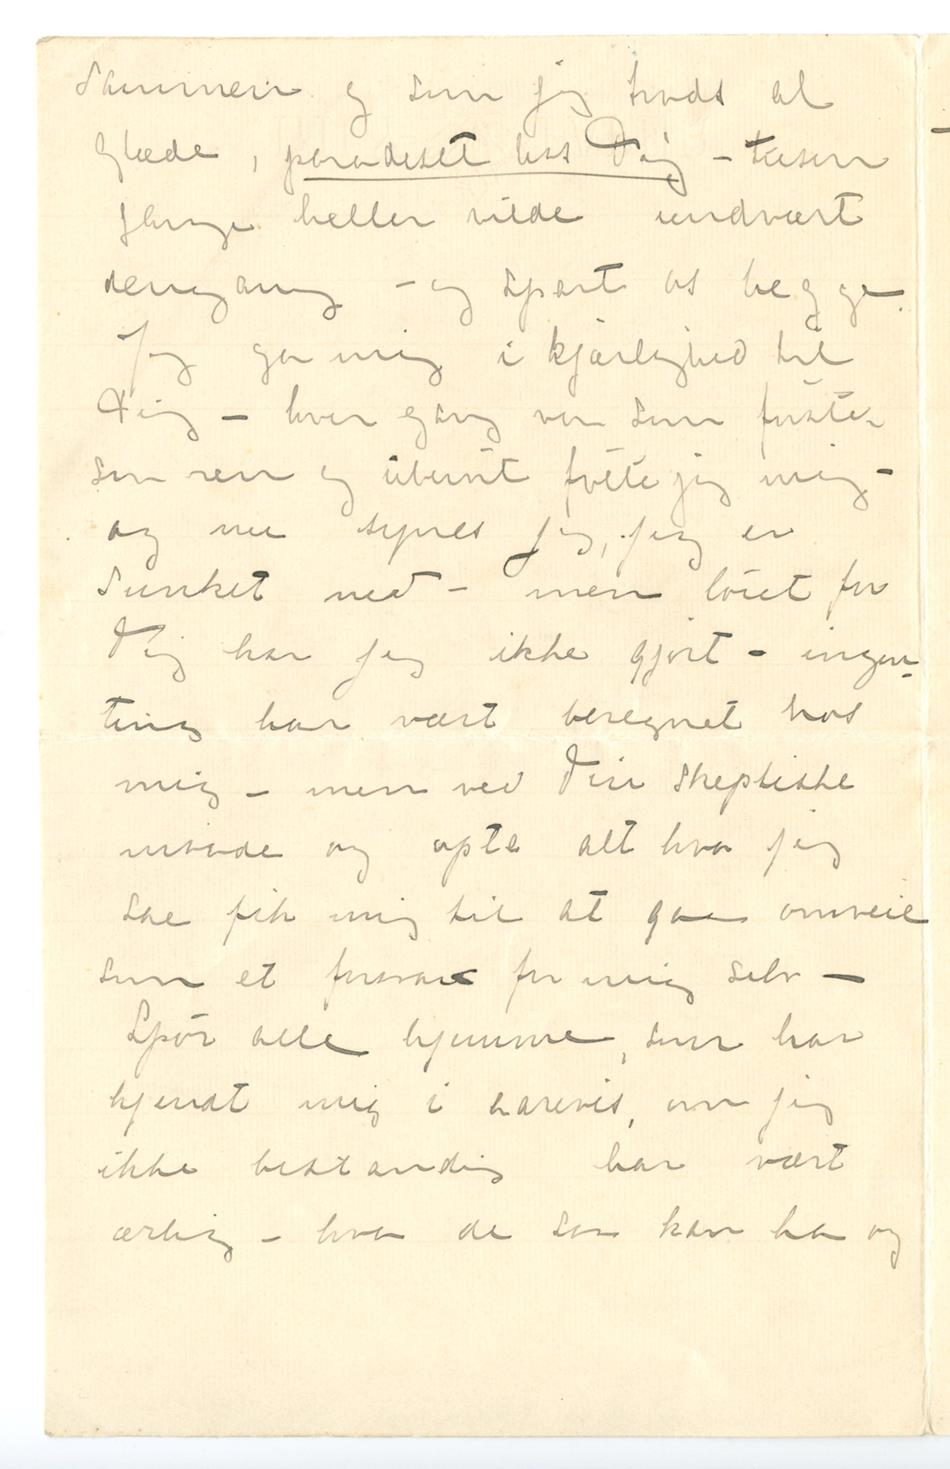 sammen og som jeg trods al
glæde, paradiset hos Dig – tusen
gange heller vilde undvært
dengang – og spart os begge.
Jeg ga mig i kjærlighed til
Dig – hver gang var som første –
som ren og uberørt følte jeg mig –
og nu synes jeg, jeg er
sunket ned – men løiet for
Dig har jeg ikke gjort – ingen-
ting har vært beregnet hos
mig – men ved Din skeptiske
maade og alt hva jeg
saa fik mig til at gaa omveie
som et forsvar for mig selv –
Spør alle hjemme, som har
kjendt mig i aarevis, om jeg
ikke bestandig har vært
ærlig – hva de saa kan ha og